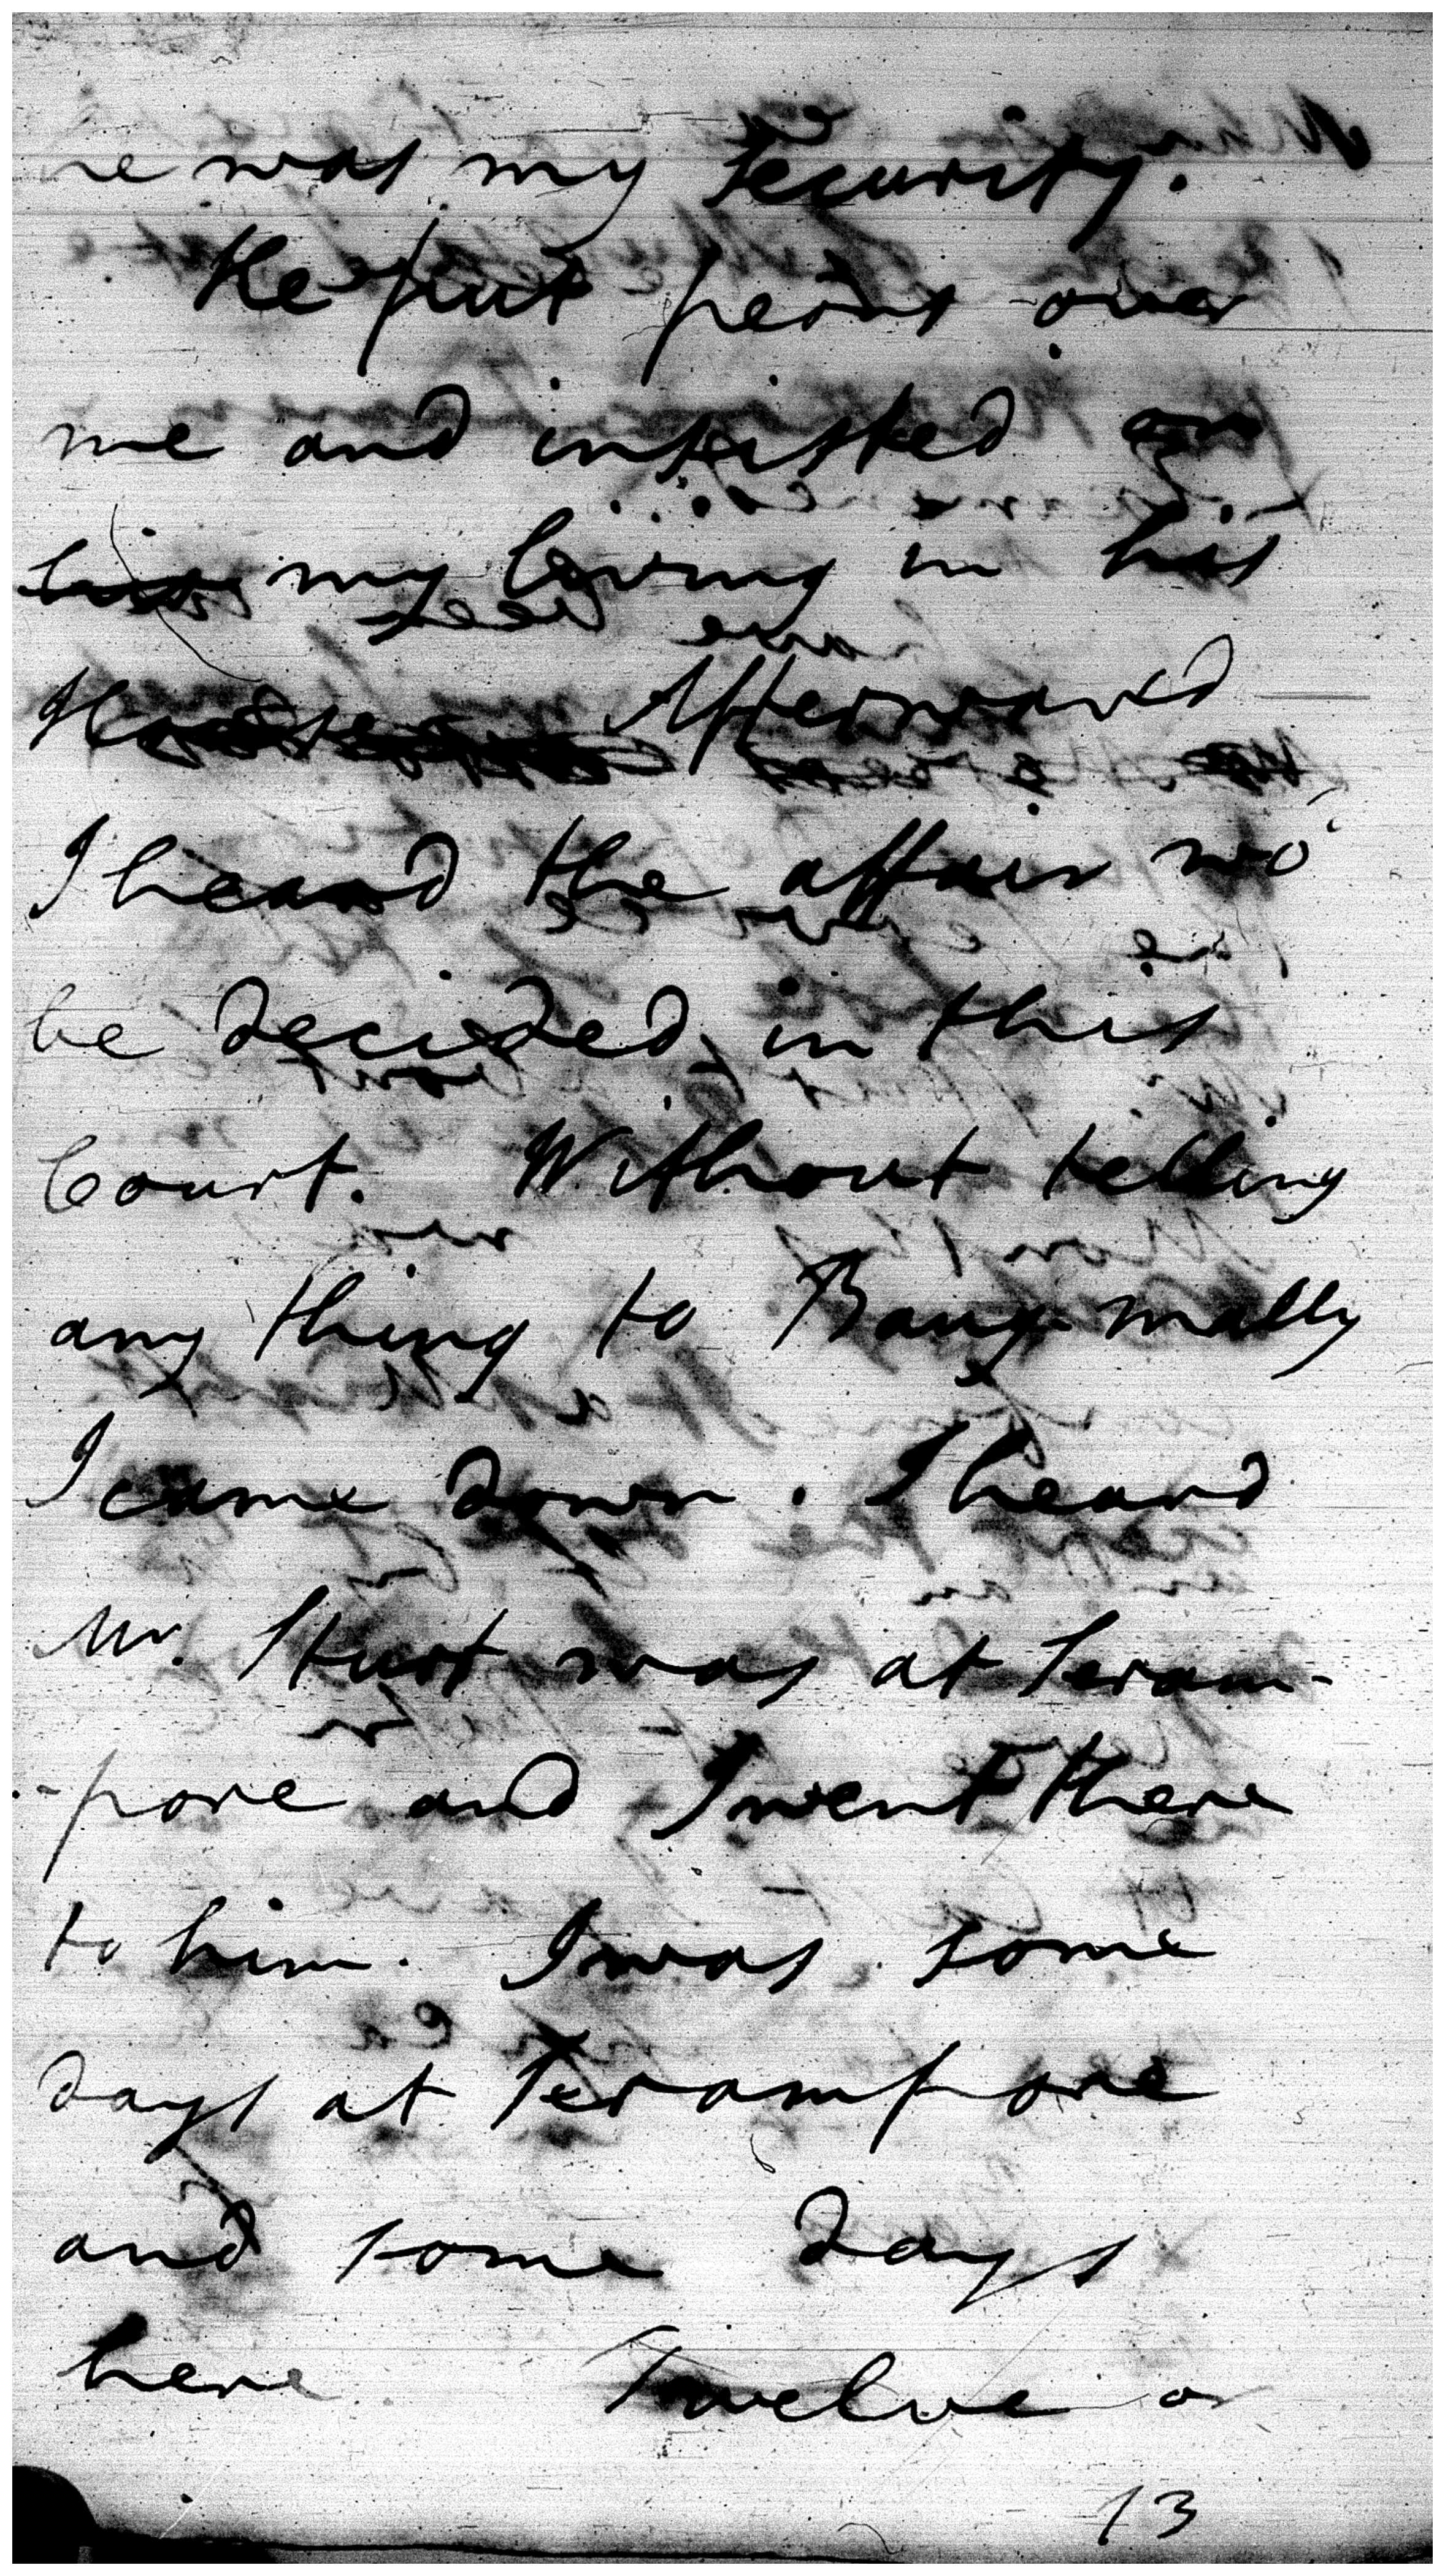 he was my Security.
He put peons over
me and insisted on
my living in his
House Afterward
I heard the affair wo'
be decided in this
Court. Without telling
any thing to Bangmally
I came down. I heard
Mr. Sturt was at Seram-
-pore and I went there
to him. I was some
days at Serampore
and some days
here Twelve or
13